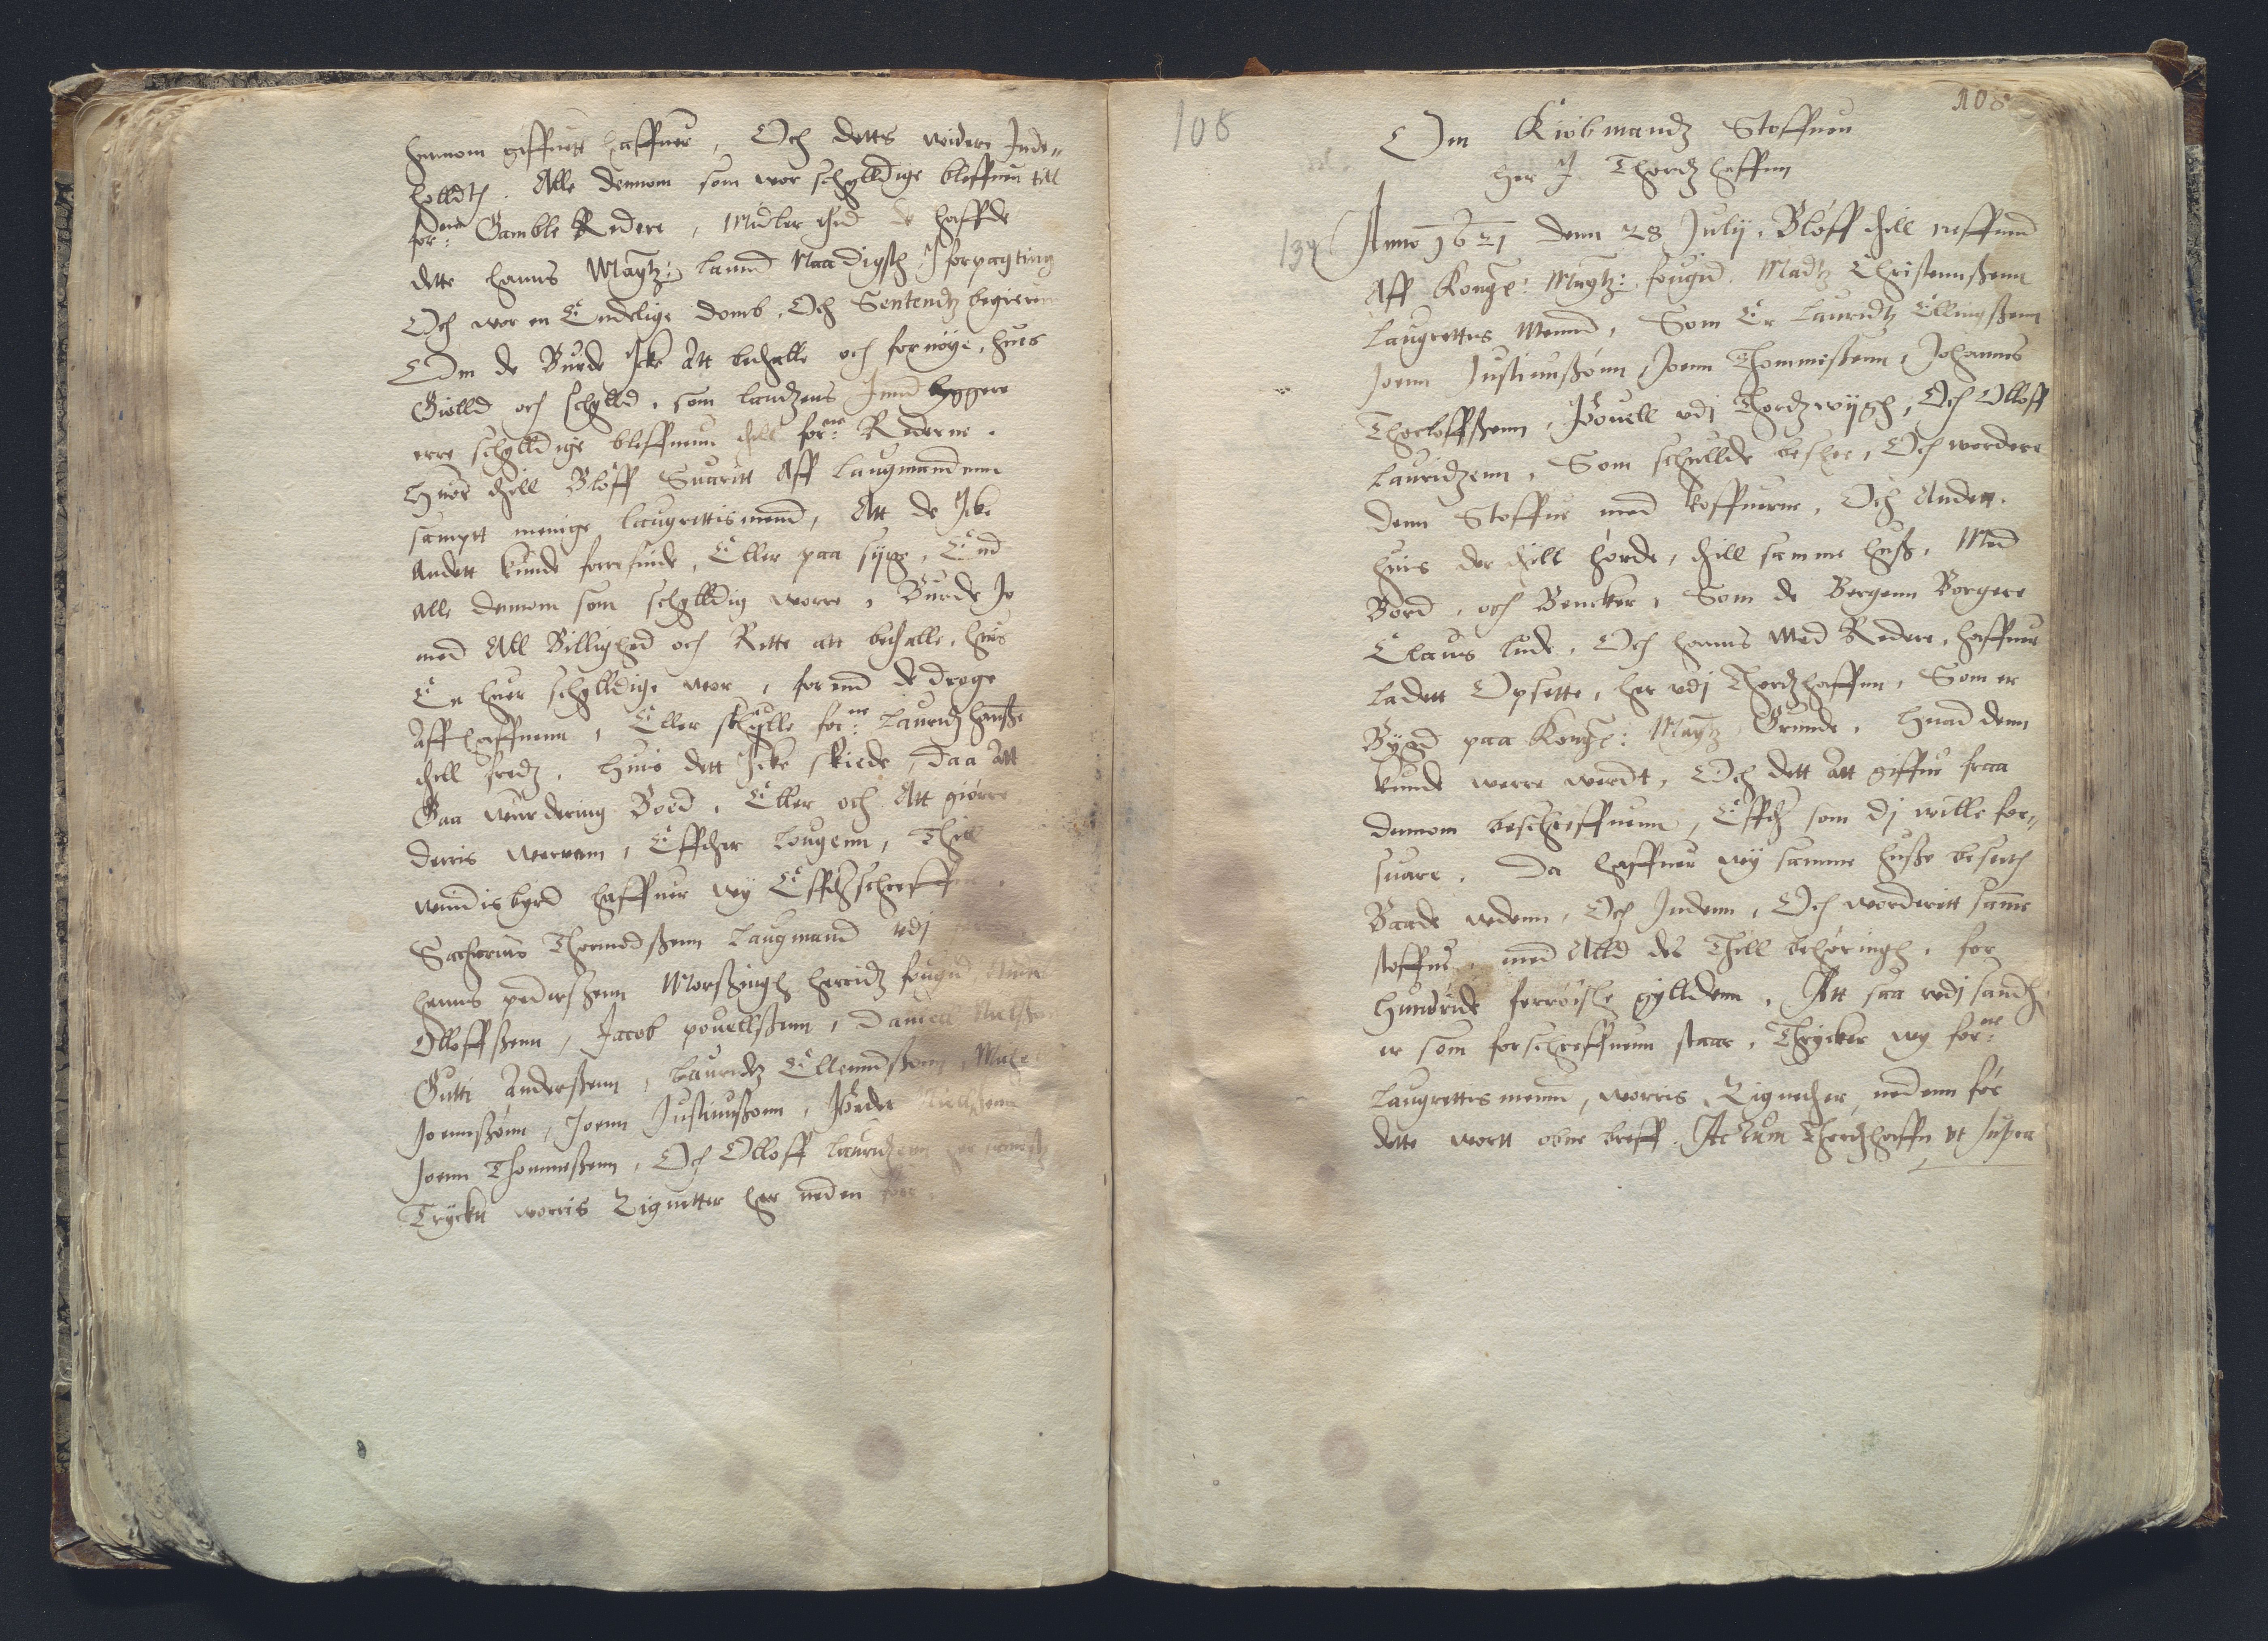 hannom giffuett haffuer, Och dettis widere Inde„
holldth. Alle dennom som wor schylldige bleffuen till
for:ne Gamble Redere, Midler thid de haffde
dette hanns Maytz: Lannd Naadigste J forpagting
Och wor en Endelige domb, Och Sententz begierenn
Om de Burde Icke Att bethalle och fornøye, huis
Gielld och schylld, som Landzens Innd byggere
erre schylldige bleffuenn thill for:ne Rederne.
Huor thill Bløff Suaritt Aff Laugmandenn
sampt menige Laugrettismend, Att de Icke
Andett kunde forrefinde, Eller paa sige, End
Alle dennom som schylldig worre, Burde Jo
med All Billighed och Rette att bethalle, huis
En huer schylldige wor, forend de droge
Aff haffnenn, Eller skulle for:ne Lauridz Hansße
thill fredz, Huis dett Icke skiede, Daa Att
Gaa wurdering Boed, Eller och Att giørre
derris werremn, Effther Lougenn, Thill
windisbyrd haffuer wy Effth:schreffne
Sacherius Thormodßenn Laugmand udj
Hanns pedersßenn Morßingh herridz fougid,
Olloffßenn, Jacob pouellßenn, Daniell Nielßen
Gutti Anderßenn, Lauridz Ellenndßønn,
Joennßønn, Joenn Justinnßønn, Peder Nielßenn
Joenn Thommeßenn, Och Olloff Lauridzenn
Tryckt worris Zignetter her neden for.
108
108
Om Kiøbmandz Stoffuen
her J Thordzhaffnn
134
Anno 1621 denn 28 Julij, Bløff thill neffnnd
Aff Kongl: Maytz: fougid. Madtz Christennßenn
Laugrettes Mennd, Som Er Lauridtz Ellingßenn
Joenn Justinnßønn, Joenn Thommeßenn, Johannes
Thorloffßenn, Pouell udj Thordzwijgh, Och Olloff
Lauridzenn, Som schullde besee, Och wordere
denn Stoffue med koffuerne, Och Andett.
huis der thill hørde, thill samme huß, Med
Bord, och Bencker, Som de Bergenn Borgere
Claus lude, Och hanns Med Redere, haffuer
Ladett Opsette, her udj Thordzhaffnn, Som er
Bygd paa Kongl: Maytz Grunde, Huad denn
kunde werre werdt, Och dett Att giffue fraa
dennom beschreffuenn, Effth: som dj wille for„
suare. Da haffuer wij samme huße beseeth
Baade udenn, Och Indenn, Och worderitt samme
stoffue, med Alld des Thill behøringh, for
Hundride ferrøische gylldenn, Att saa udj sandh:
er som forschreffuenn staar, Thrycker wy for:ne
Laugrettismennd, worris Zignether, nedenn for
dette wortt obne breff. Actum Thordzhaffn ut supra